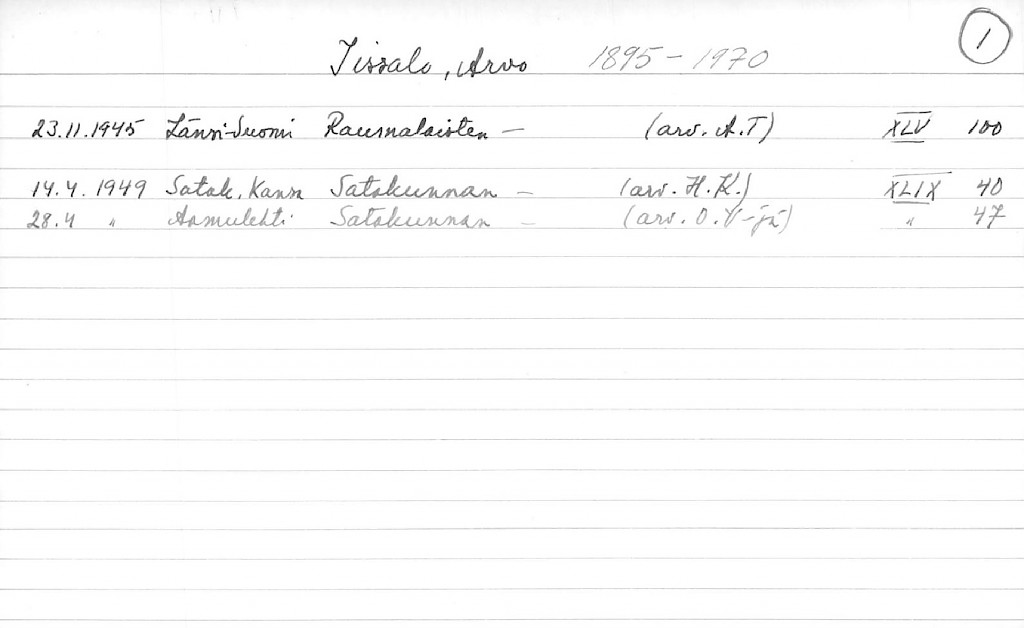 1
Iissalo, Arvo 1895 - 1970
23.11.1945 Länsi-Suomi Raumalaisten - (arv. A.T) XLV 100
14.4.1949 Satak. Kansa Satakunnan - (arv. H.K.) XLIX 40
28.4 " Aamulehti Satakunnan - (arv. O.V-jä) " 47